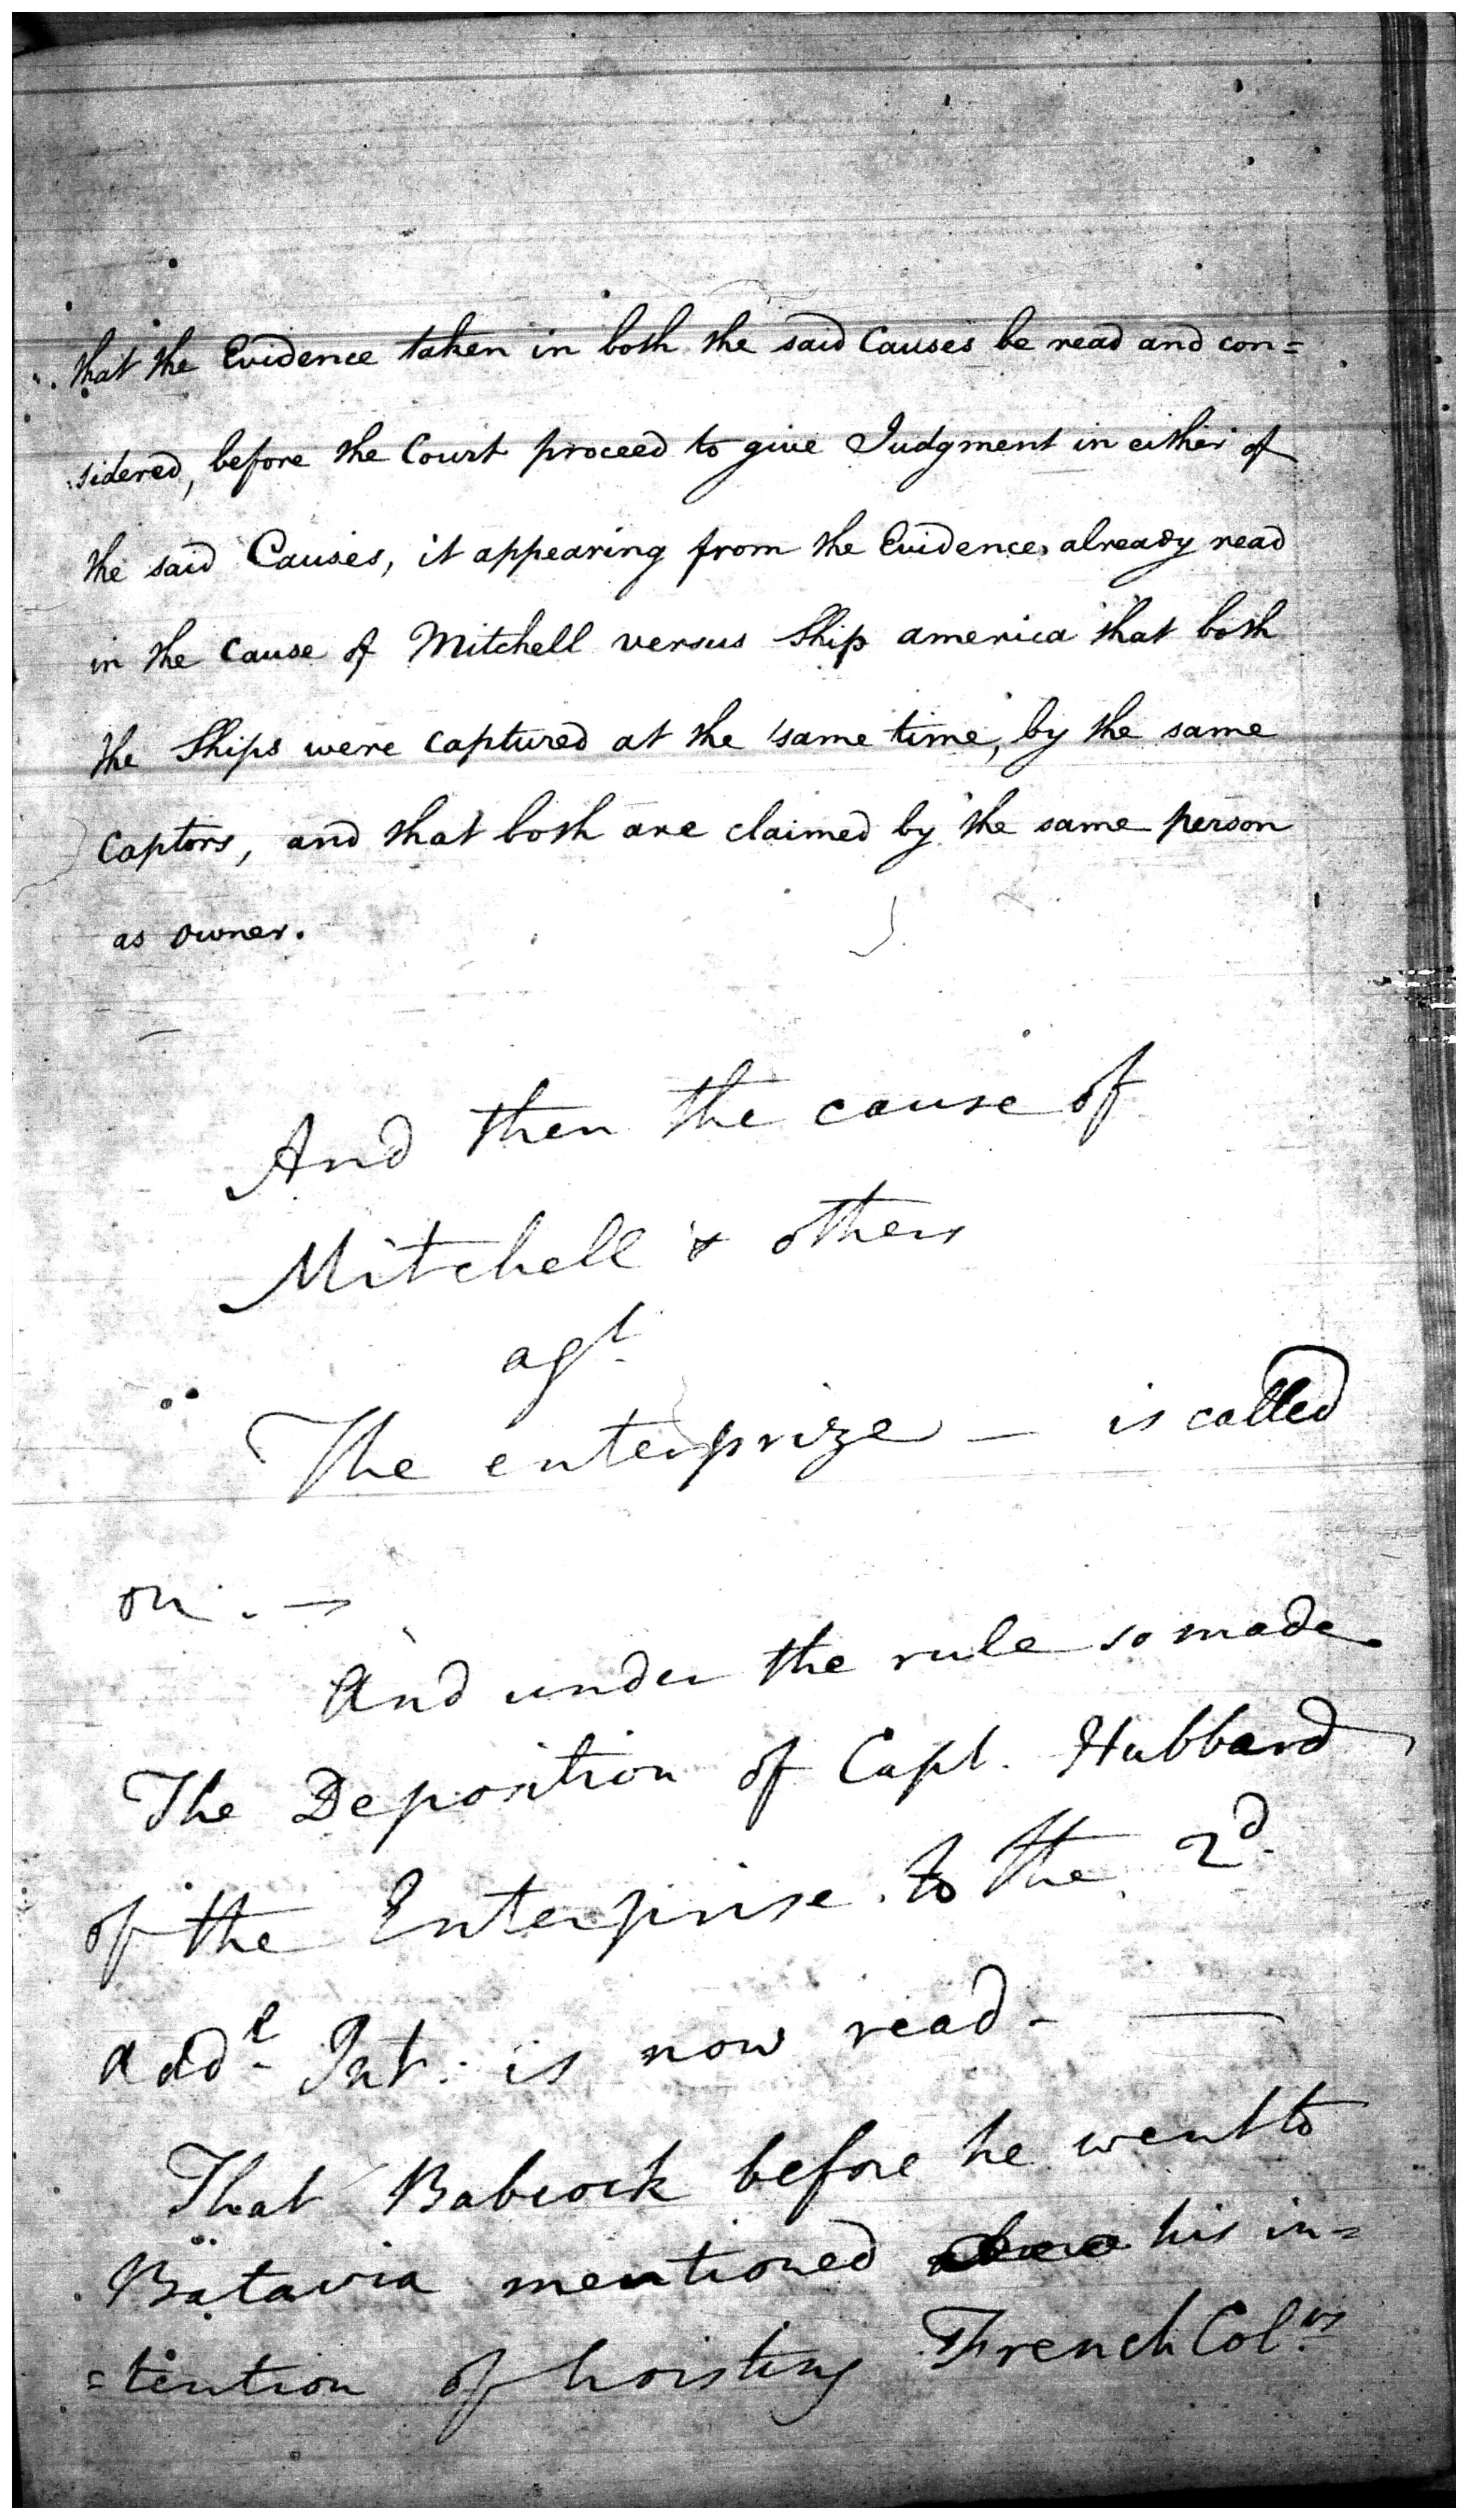 that the Evidence taken in both the said Causes be read and con=
sidered, before the Court proceed to give Judgment in either of
the said Causes, it appearing from the Evidence already read
in the Cause of Mitchell versus Ship america that both
the Ships were captured at the same time, by the same
Captors, and that both are claimed by the same person
as owner.
And then the cause of
Mitchell & others
agt
The enterprize — is called
on. —
And under the rule so made
The Deposition of Capt. Hubbard
of the Enterprise to the 2d.
addl Int: is now read —
That Babcock before he went to
Batavia mentioned his in=
=tention of hoisting French Colrs